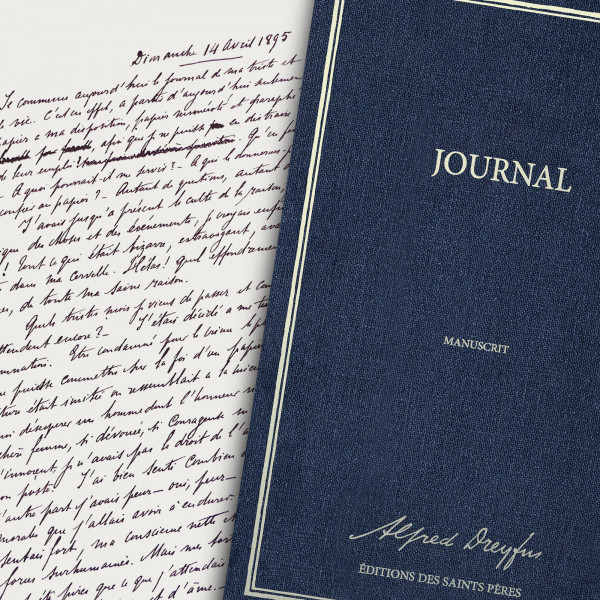 Dimanche 14 Avril 1895
Je commence aujourd'hui le journal de ma triste et
vie. C'est en effet, à partir d'aujourd'hui seulement
papier à ma disposition, papier numéroté et paraphé
afin que je ne puisse en distraire
de leur emploi? Qu'en
A quoi pourrait-il me servir? — A qui le donnerais-je
confier au papier? — Autant de questions, autant
J'avais jusqu'à présent le culte de la raison,
des choses et des événements, je croyais enfin
! Tout ce qui était bizarre, extravagant,
dans ma cervelle. Hélas! quel effondrement
de toute ma saine raison.
Quels tristes mois je viens de passer et
attendent encore? — J'étais décidé à me tuer
Être condamné pour le crime le plus
puisse commettre sur la foi d'un papier
était imitée ou ressemblait à la mienne
désespérer un homme dont l'honneur
chère femme, si dévouée, si courageuse
innocent, je n'avais pas le droit de l'
poste! J'ai bien senti combien
autre part j'avais peur — oui, peur —
morales que j'allais avoir à endurer.
sentais fort, ma conscience nette et
forces surhumaines. Mais mes
été pires que ce que j'attendais
et d'âme.
JOURNAL
MANUSCRIT
Alfred Dreyfus
ÉDITIONS DES SAINTS PÈRES